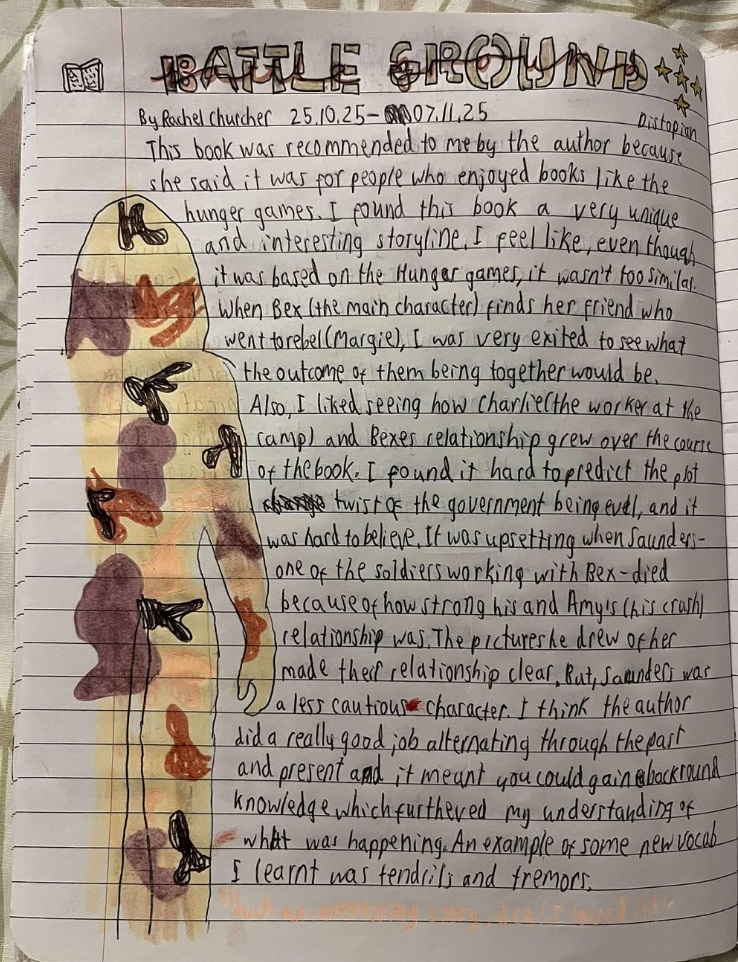 BATTLE GROUND
By Rachel Churcher 25.10.25-07.11.25
Distopian
This book was recommended to me by the author because
she said it was for people who enjoyed books like the
hunger games. I found this book a very unique
and interesting storyline. I feel like, even though
it was based on the Hunger games, it wasn't too similar.
When Bex (the main character) finds her friend who
went to rebel (Margie), I was very exited to see what
the outcome of them being together would be.
Also, I liked seeing how Charlie(the worker at the
camp) and Bexes relationship grew over the course
of the book. I found it hard to predict the plot
twist of the government being evil, and it
was hard to believe. It was upsetting when Saunders-
one of the soldiers working with Bex-died
because of how strong his and Amy's (his crash)
relationship was. The pictures he drew of her
made their relationship clear. But, Saunders was
a less cautious character. I think the author
did a really good job alternating through the past
and present and it meant you could gain backround
knowledge which furthered my understanding of
what was happening. An example of some new vocab
I learnt was tendrils and tremors.
I loved it